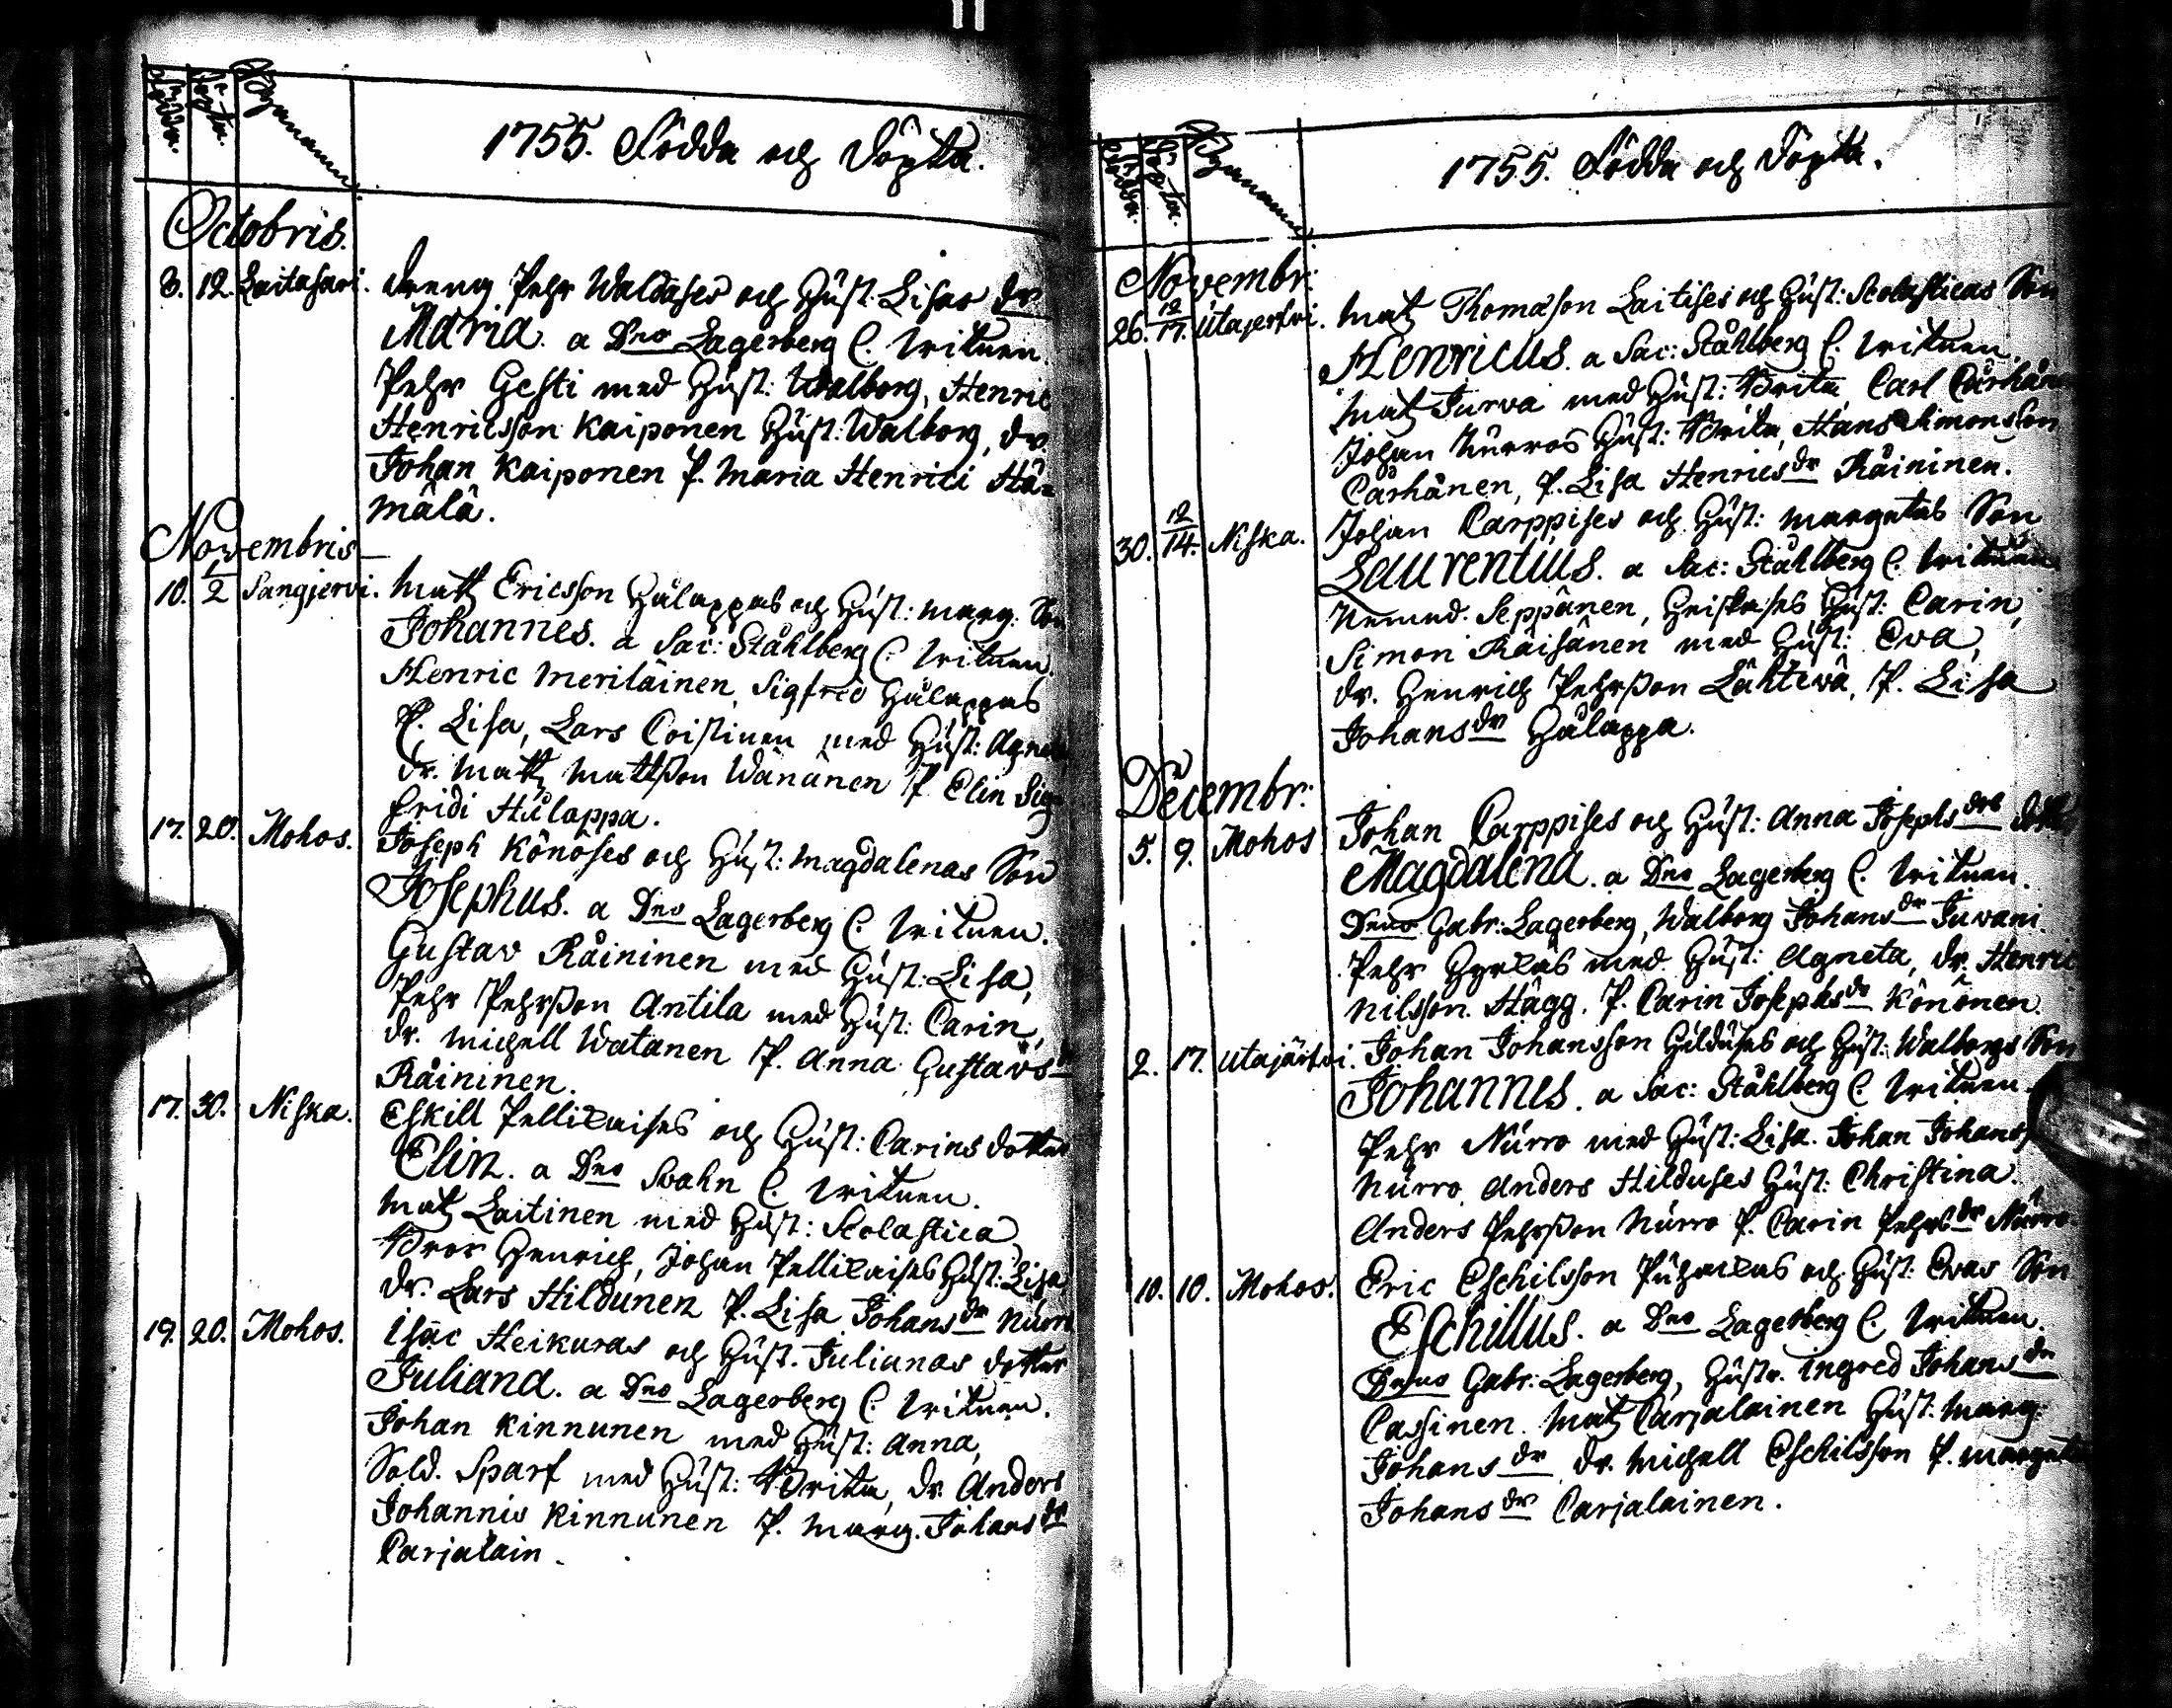 Födda. Döpta. Bynamn.
1755. Födda och Döpta.
Octobris.
3. 12. Laitasari. dreng Pehr Waldases och Hust. Lisas dr
Maria. a Dno Lagerberg C. Witnen.
Pehr Gesti med Hust: Walborg, Henric
Henricsson Kaiponen Hust: Walborg, dr.
Johan Kaiponen P. Maria Henrici Hä-
mälä.
Novembris
10. 1/2 Sangjervi. Matt Ericsson Hulappas och Hust: Marg. Son
Johannes. a Sac: Ståhlberg C. Witnen.
Henric Meriläinen, Sigfred Hulappas
P. Lisa, Lars Coistinen med Hust: Agneta
dr. Matts Mattsson Wänänen P Elin Sig-
fridi Hulappa.
17. 20. Mohos. Joseph Könöses och Hust: Magdalenas Son
Josephus. a Dno Lagerberg C. Witnen.
Gustav Räininen med Hust: Lisa,
Pehr Pehrsson Antila med Hust: Carin,
dr. Michell Watanen P. Anna Gustavs dr
Räininen.
17. 30. Niska. Eskill Pellikaises och Hust: Carins dotter
Elin. a Dno Svahn C. Witnen.
Mats Laitinen med Hust: Scolastica
Bror Henrich, Johan Pellikaises Hust: Lisa
dr. Lars Hildunen P. Lisa Johans dr Nurro
19. 20. Mohos. Isac Heikuras och Hust. Julianas dotter
Juliana. a Dno Lagerberg C. Witnen.
Johan Kinnunen med Hust: Anna,
Sold. Sparf med Hust: Brita, dr Anders
Johannis Kinnunen P. Marg. Johans dr
Carjalain.
Födda. Döpta. Bynamn.
1755. Födda och Döpta.
Novembr:
26. 12/17. Utajervi. Mats Thomasson Laitises och Hust: Scolasticas Son
Henricus. a Sac: Ståhlberg C. Witnen.
Mats Jurva med Hust: Brita, Carl Cärhänen
Johan Nurros Hust: Brita, Hans Simonsson
Cärhänen, P. Lisa Henrics dr Räininen.
30. 12/14. Niska. Johan Carppises och Hust: Margetas Son
Laurentius. a Sac: Ståhlberg C. Witnen
Seppänen, Hust: Carin,
Simon Räisänen med Hust: Eva,
dr. Henrich Pehrsson Lähtevä, P. Lisa
Johans dr Hulappa.
Decembr:
5. 9. Mohos Johan Carppises och Hust: Anna Josephs drs dotter
Magdalena. a Dno Lagerberg C. Witnen.
Dnus Gabr: Lagerberg, Walborg Johans dr Juvani.
Pehr Hyrkas med Hust: Agneta, dr. Henric
Nilsson Hägg. P. Carin Josephs dr Könönen.
2. 17. Utajärfvi. Johan Johansson Hilduses och Hust: Walborgs Son
Johannes. a Sac: Ståhlberg C. Witnen.
Pehr Nurro med Hust: Lisa. Johan Johans
Nurro Anders Hilduses Hust: Christina.
Anders Pehrsson Nurro P. Carin Pehrs dr Nurro.
10. 10. Mohos. Eric Eschilsson Puhackas och Hust: Evas Son
Eschillus. a Dno Lagerberg C. Witnen.
Dnus Gabr: Lagerberg, Hustr. Ingred Johans dr
Cassinen. Mats Carjalainen Hust: Marg:
Johans dr dr. Michell Eschilsson P. Margeta
Johans dr Carjalainen.